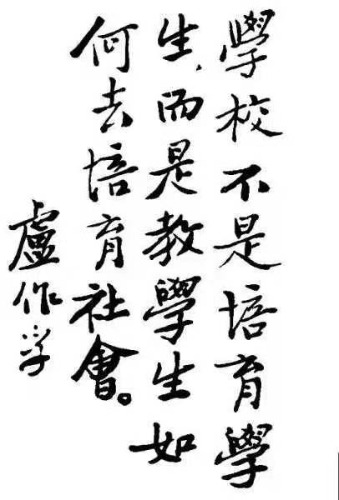 學校不是培育學
生,而是教學生如
何去培育社會。
盧作孚